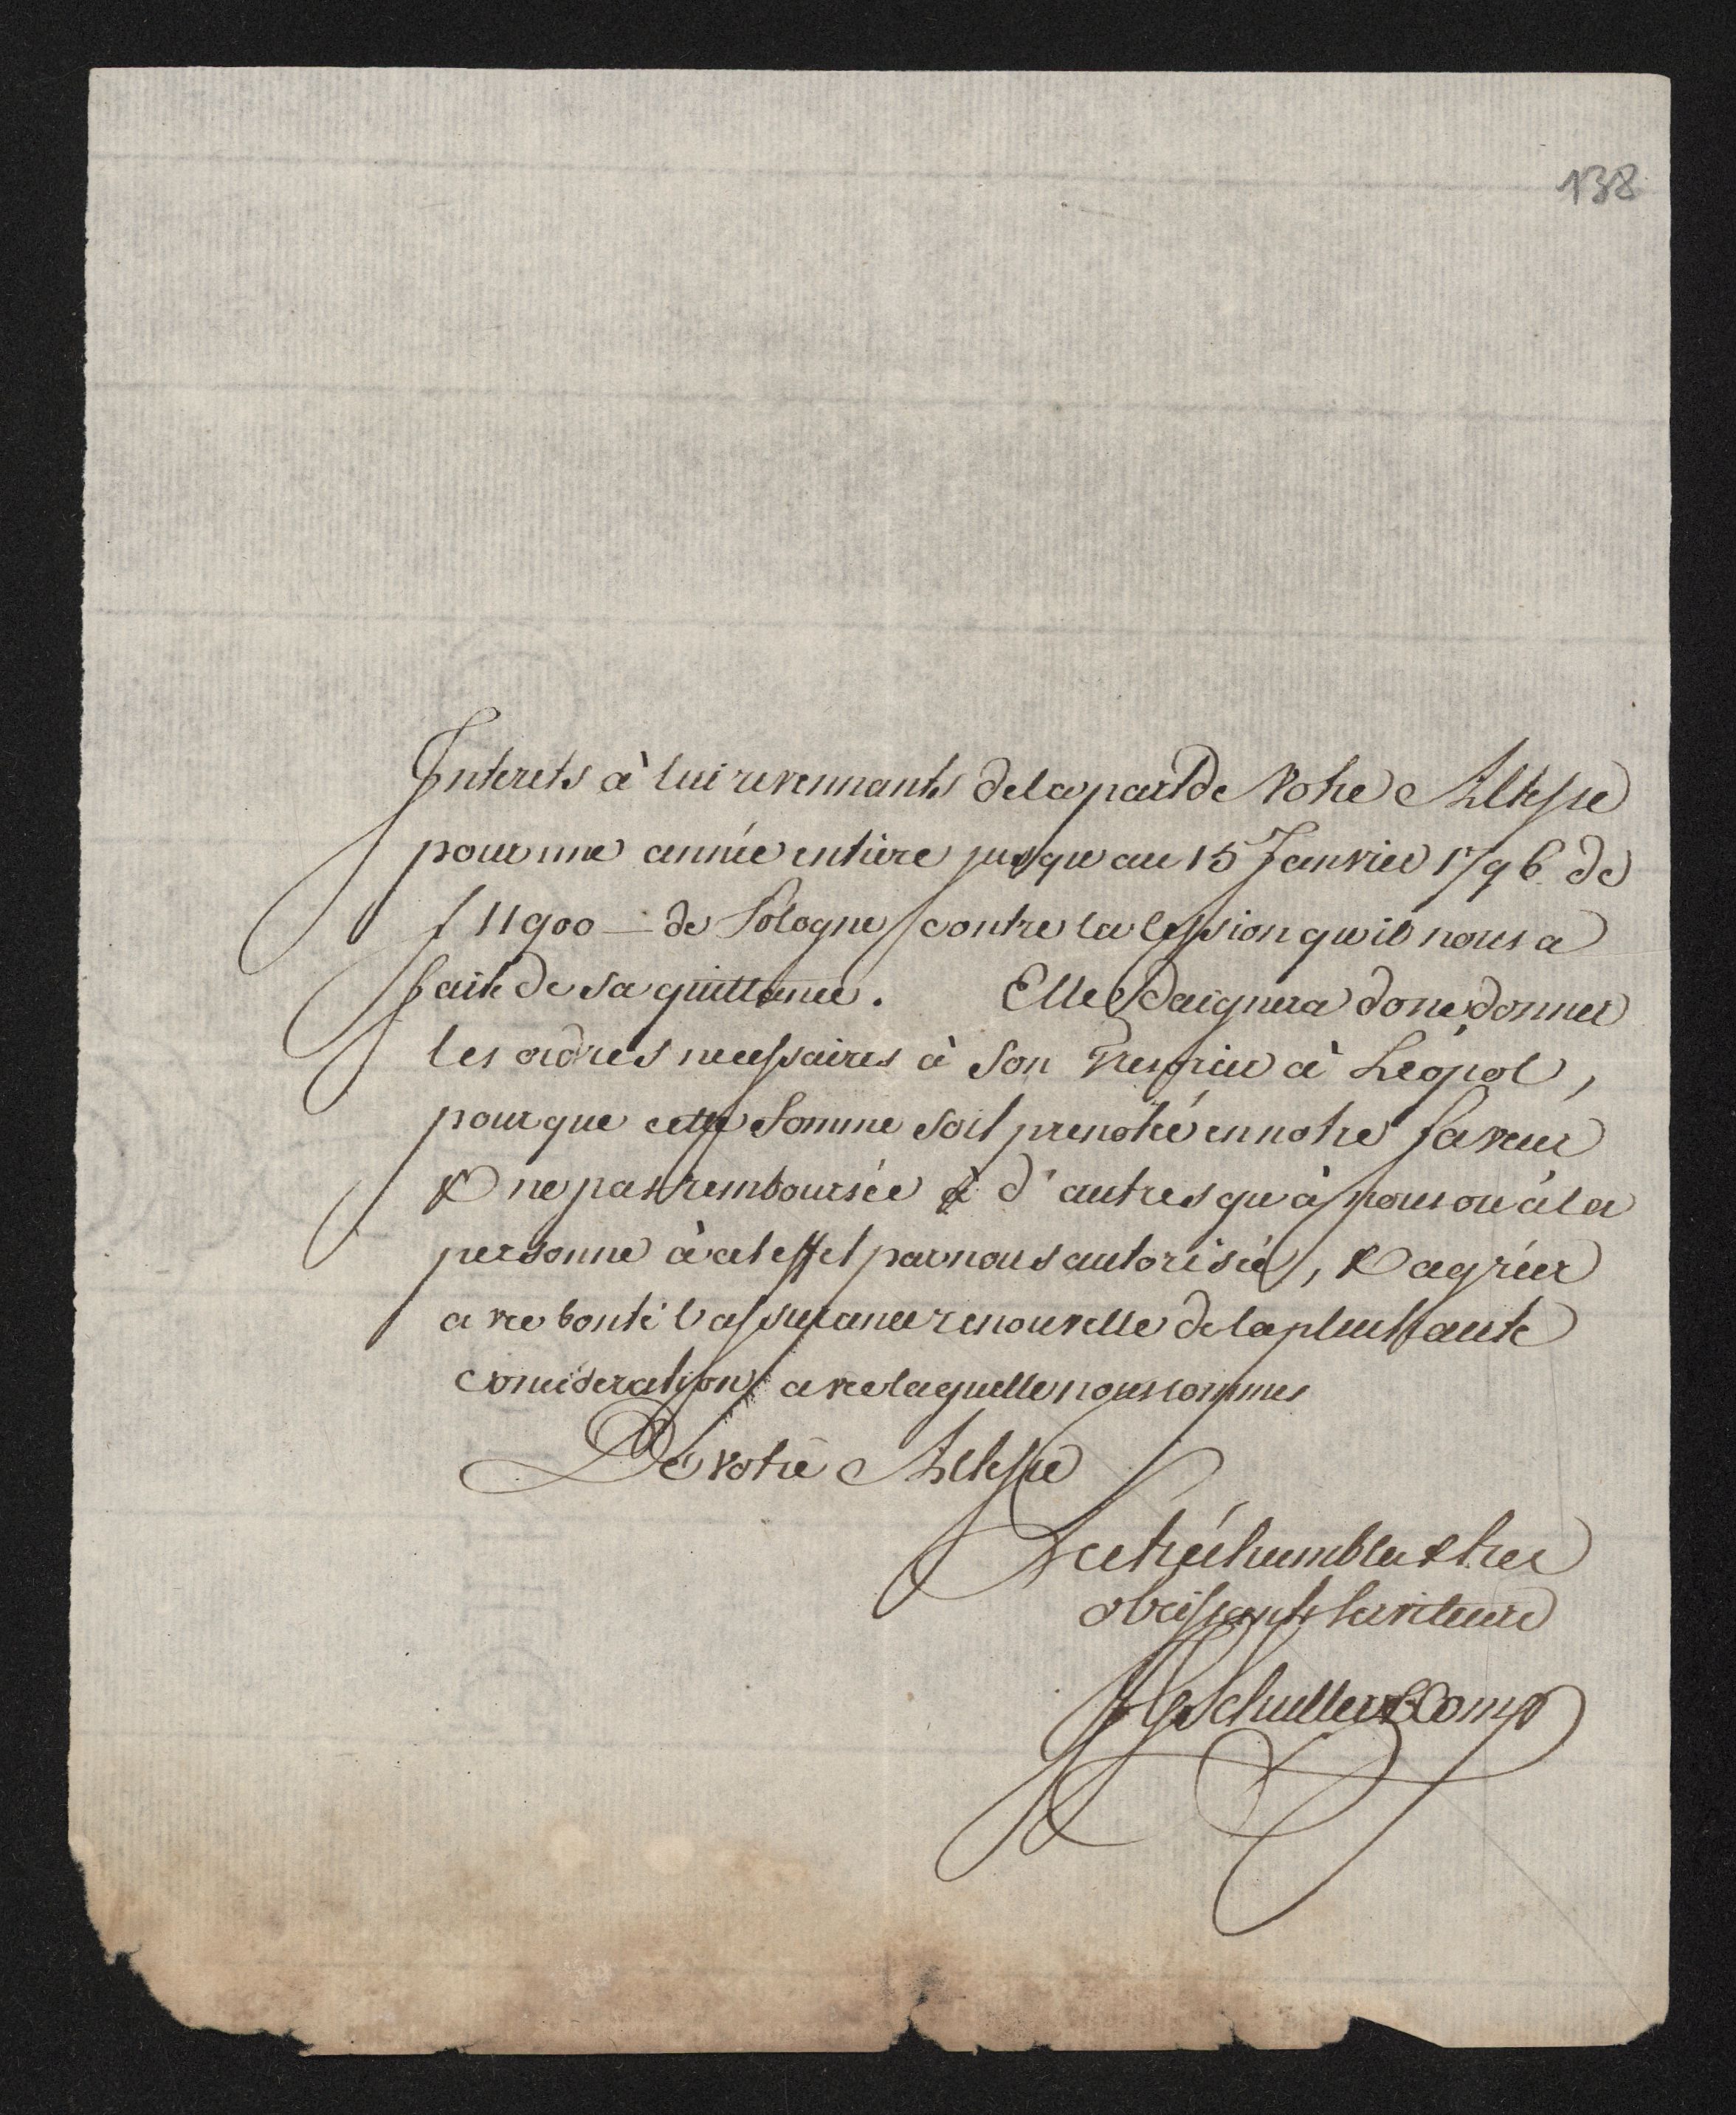 138
Interets à lui revennants de la part de Votre Altesse
pour une année entiere jusqu au 15 Janvier 1796 de
f 11900 — de Pologne contre la Cession qu il nous a
faite de sa quittance. Elle Daignera donc donner
les ordres necessaires à Son Tresorier à Léopol,
pour que cette Somme soit prenotée en notre faveur
& ne pas remboursée à d'autres qu à nous ou à la
personne à cet effet par nous autorisée, & agréer
avec bonté l assurance renouvelle de la plus haute
consideration avec laquelle nous sommes
De Votre Altesse
Les trés humbles & tres
obeissants Serviteurs
Schuller & Comp